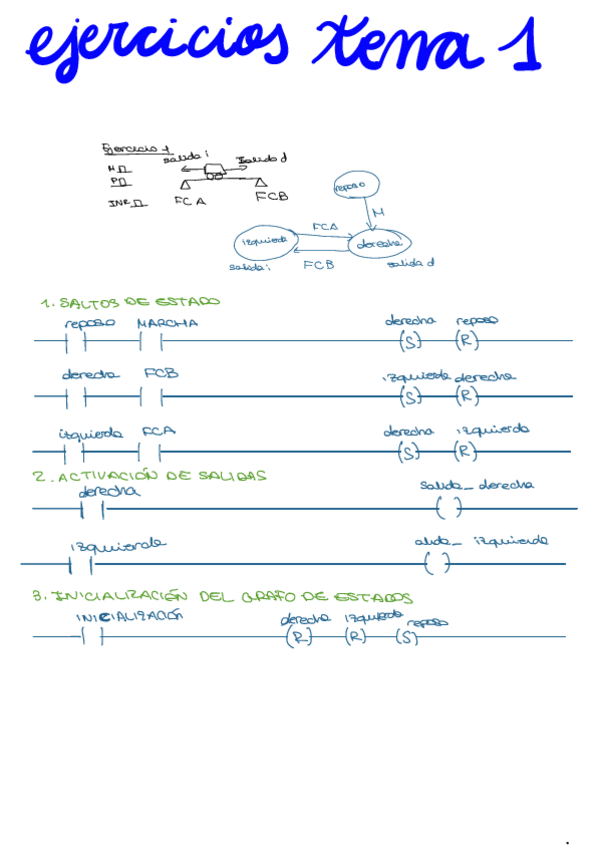 ejercicios tema 1
Ejercicio 1
salida i salida d
M
P
INI FCA FCB
reposo
M
FCA
izquierda derecha
salida i FCB salida d
1. SALTOS DE ESTADO
reposo MARCHA derecha reposo
(S) (R)
derecha FCB izquierda derecha
(S) (R)
izquierda FCA derecha izquierda
(S) (R)
2. ACTIVACIÓN DE SALIDAS
derecha salida_ derecha
( )
izquierda alida_ izquierda
( )
3. INICIALIZACIÓN DEL GRAFO DE ESTADOS
INICIALIZACIÓN derecha izquierda reposo
(R) (R) (S)